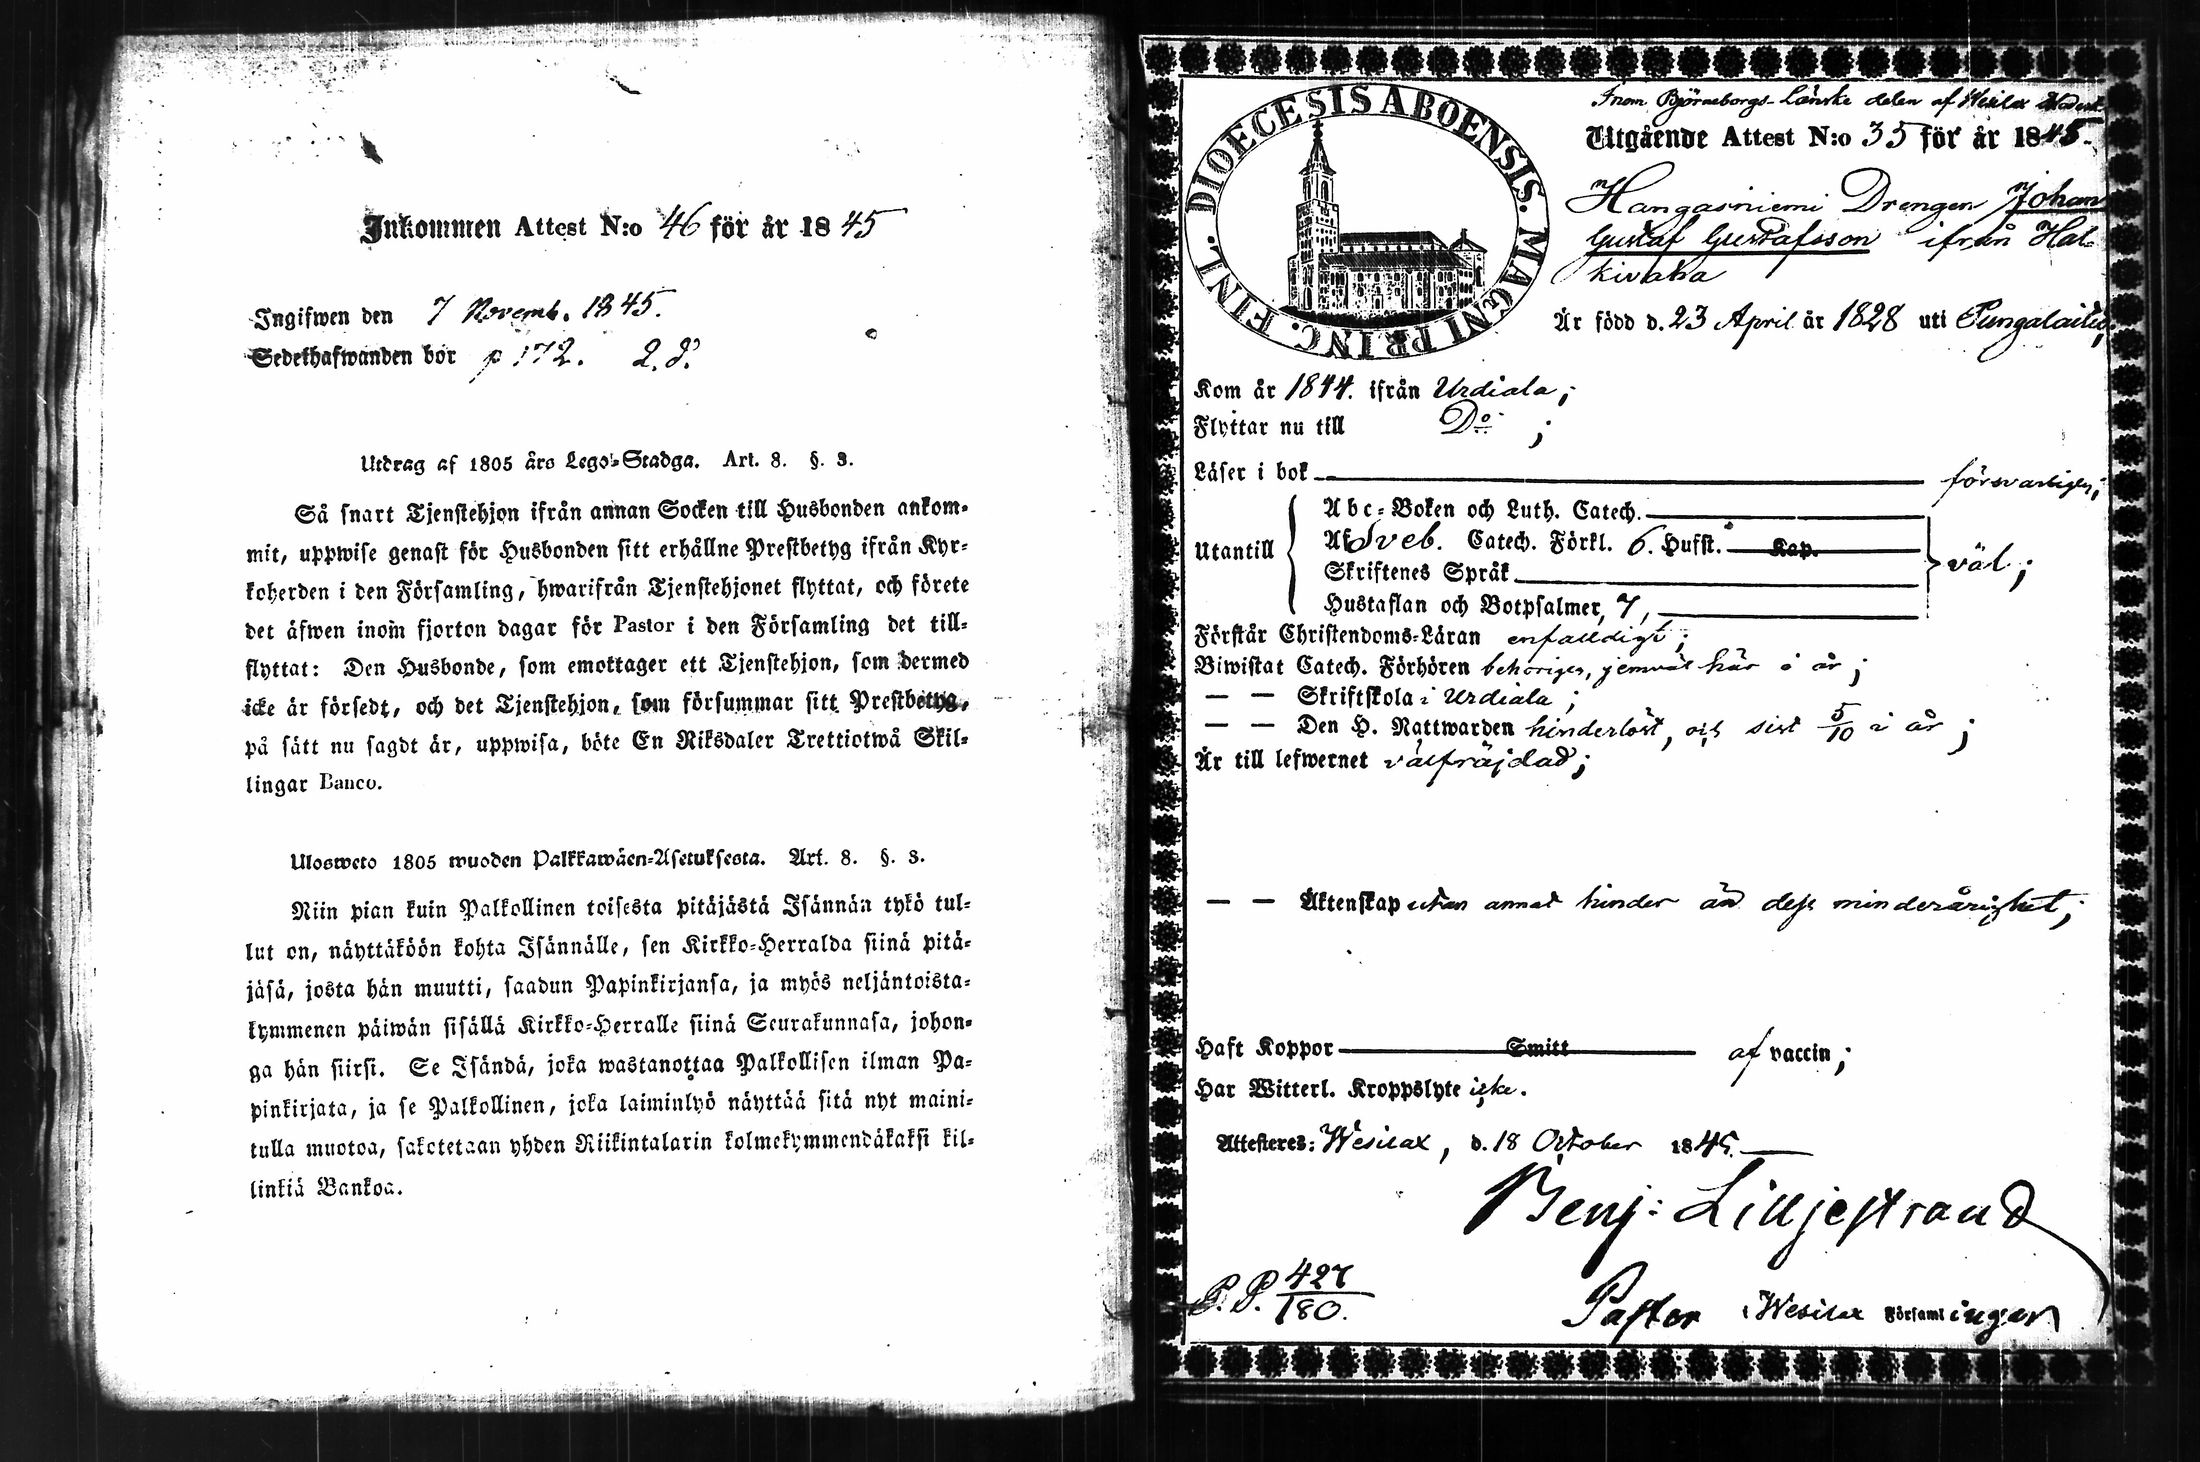 Inkommen Attest N:o 46 för år 1845
Ingifwen den 7 Novemb. 1845.
Sedelhafwanden bor p 172.
Utdrag af 1805 års Lego-Stadga. Art. 8. §. 3.
Så snart Tjenstehjon ifrån annan Socken till Husbonden ankom-
mit, uppwise genast för Husbonden sitt erhållne Prestbetyg ifrån Kyr-
koherden i den Församling, hwarifrån Tjenstehjonet flyttat, och förete
det äfwen inom fjorton dagar för Pastor i den Församling det till-
flyttat: Den Husbonde, som emottager ett Tjenstehjon, som dermed
icke är försedt, och det Tjenstehjon, som försummar sitt Prestbetyg,
på sätt nu sagdt är, uppwisa, böte En Riksdaler Trettiotwå Skil-
lingar Banco.
Ulosweto 1805 wuoden Palkkawäen-Asetuksesta. Art. 8. §. 3.
Niin pian kuin Palkollinen toisesta pitäjästä Isännän tykö tul-
lut on, näyttäköön kohta Isännälle, sen Kirkko-Herralda siinä pitä-
jäsä, josta hän muutti, saadun Papinkirjansa, ja myös neljäntoista-
kymmenen päiwän sisällä Kirkko-Herralle siinä Seurakunnasa, johon-
ga hän siirsi. Se Isändä, joka wastanottaa Palkollisen ilman Pa-
pinkirjata, ja se Palkollinen, joka laiminlyö näyttää sitä nyt maini-
tulla muotoa, sakotetaan yhden Riikintalarin kolmekymmendäkaksi kil-
linkiä Bankoa.
DIOECESIS ABOENSIS. MAGNI PRINC. FINL.
Inom Björneborgs-Länske delen af Wesilax
Utgående Attest N:o 35 för år 1845.
Hangasniemi Drengen Johan
Gustaf Gustafsson ifrån Hal-
kivaha
Är född d. 23 April år 1828 uti Pungalaitio;
Kom år 1844. ifrån Urdiala;
Flyttar nu till Do ;
Läser i bok försvarligen;
Utantill
Abc-Boken och Luth. Catech.
Af Sveb. Catech. Förkl. 6. Hufst. Kap.
Skriftenes Språk
Hustaflan och Botpsalmer, 7,
väl;
Förstår Christendoms-Läran enfalldigt;
Biwistat Catech. Förhören behörigen, jemväl här i år;
— — Skriftskola i Urdiala;
— — Den H. Nattwarden hinderlöst, och sist 5/10 i år;
Är till lefwernet välfräjdad;
— — Äktenskap utan annat hinder än dess minderårighet;
Haft Koppor Smitt af vaccin;
Har Witterl. Kroppslyte icke.
Attesteres: Wesilax, d. 18 October 1845.
Benj: Liljestrand
P. P. 427/180.
Pastor i Wesilax Församlingar